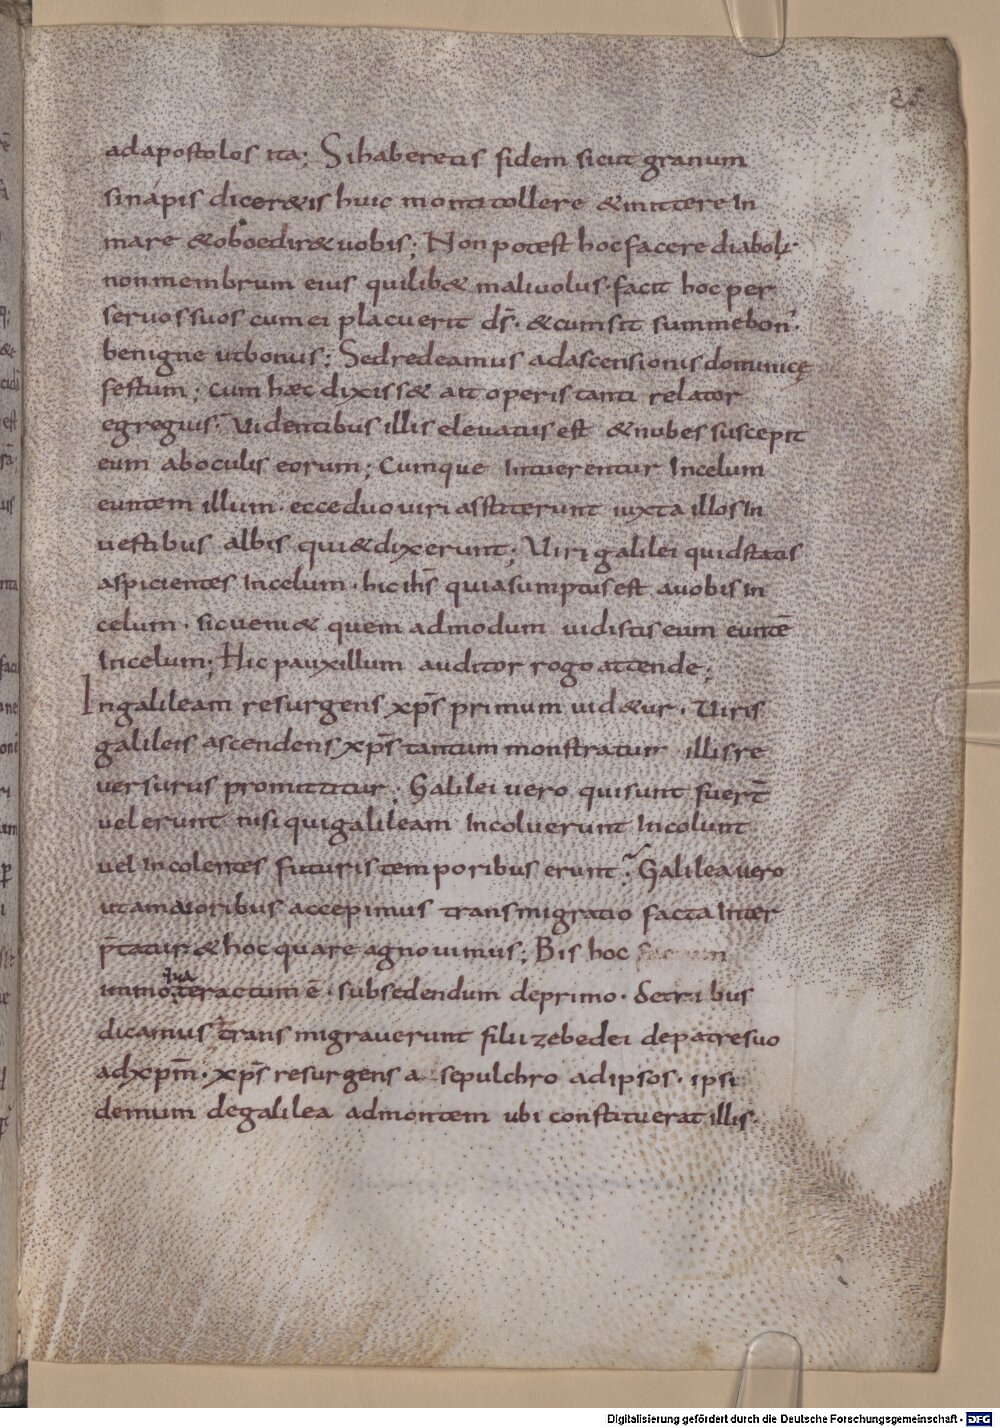 25
adapostolos ita; Sihaberetis fidem sicut granum
sinápis dicer&is huic monti tollere &mittere In
mare &oboedir& uobis; Non potest hoc facere diaboli·
non membrum eius quilib& maliuolus· facit hoc per
seruos suos cum ei placuerit d̄s· &cum sit summe bon'·
benigne utbonus; Sedredeamus adascensionis dominicę
festum; cum hæc dixiss& ait operis tanti relator
egregius· Uidentibus illis eleuatus est &nubes suscepit
eum aboculis eorum; Cumque Intuerentur Incelum
euntem illum· ecce duo uiri astiterunt iuxta illos In
uestibus albis qui&dixerunt; Uiri galilei quidstatis
aspicientes Incelum· hic ih̄s quiasumptus est auobis In
celum· sic ueni& quem admodum uidistis eum euntē
Incelum; Hic pauxillum auditor rogo attende;
Ingalileam resurgens xp̄s primum uid&ur· Uiris
galileis ascendens xp̄s tantum monstratur illis re
uersurus promittitur; Galilei uero qui sunt fuer̄t
uel erunt nisi qui galileam Incoluerunt Incolunt
uel Incolentes futuris temporibus erunt; Galilea uero
utamaioribus accepimus transmigratio facta Inter
p̄tatur &hoc quare agnouimus; Bis hoc
qua
immo ter actum ē· subsedendum deprimo· detribus
dicamus transmigrauerunt filii zebedei depatresuo
adxp̄m· xp̄s resurgens a sepulchro adipsos· ipsi
demum degalilea admontem ubi constituerat illis·
Digitalisierung gefördert durch die Deutsche Forschungsgemeinschaft - DFG